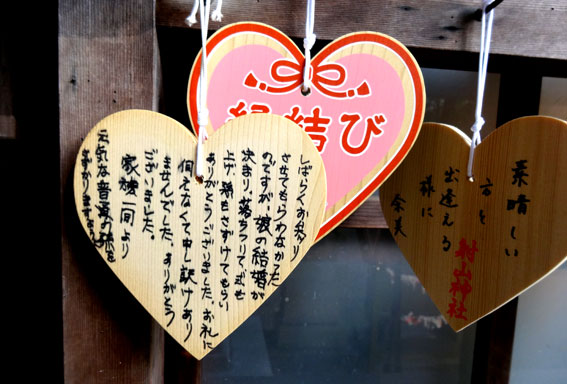 縁結び
しばらくお参り
させてもらわなかった
のですが、娘の結婚が
決まり、落ちついて式も
上げ、孫もさずけてもらい
ありがとうございました。お礼に
伺えなくて申し訳あり
ませんでした。ありがとう
ございました。
家族一同より
元気な普通の孫を
さずかりますように
素晴しい
方と
出逢える
様に
奈美
射山神社